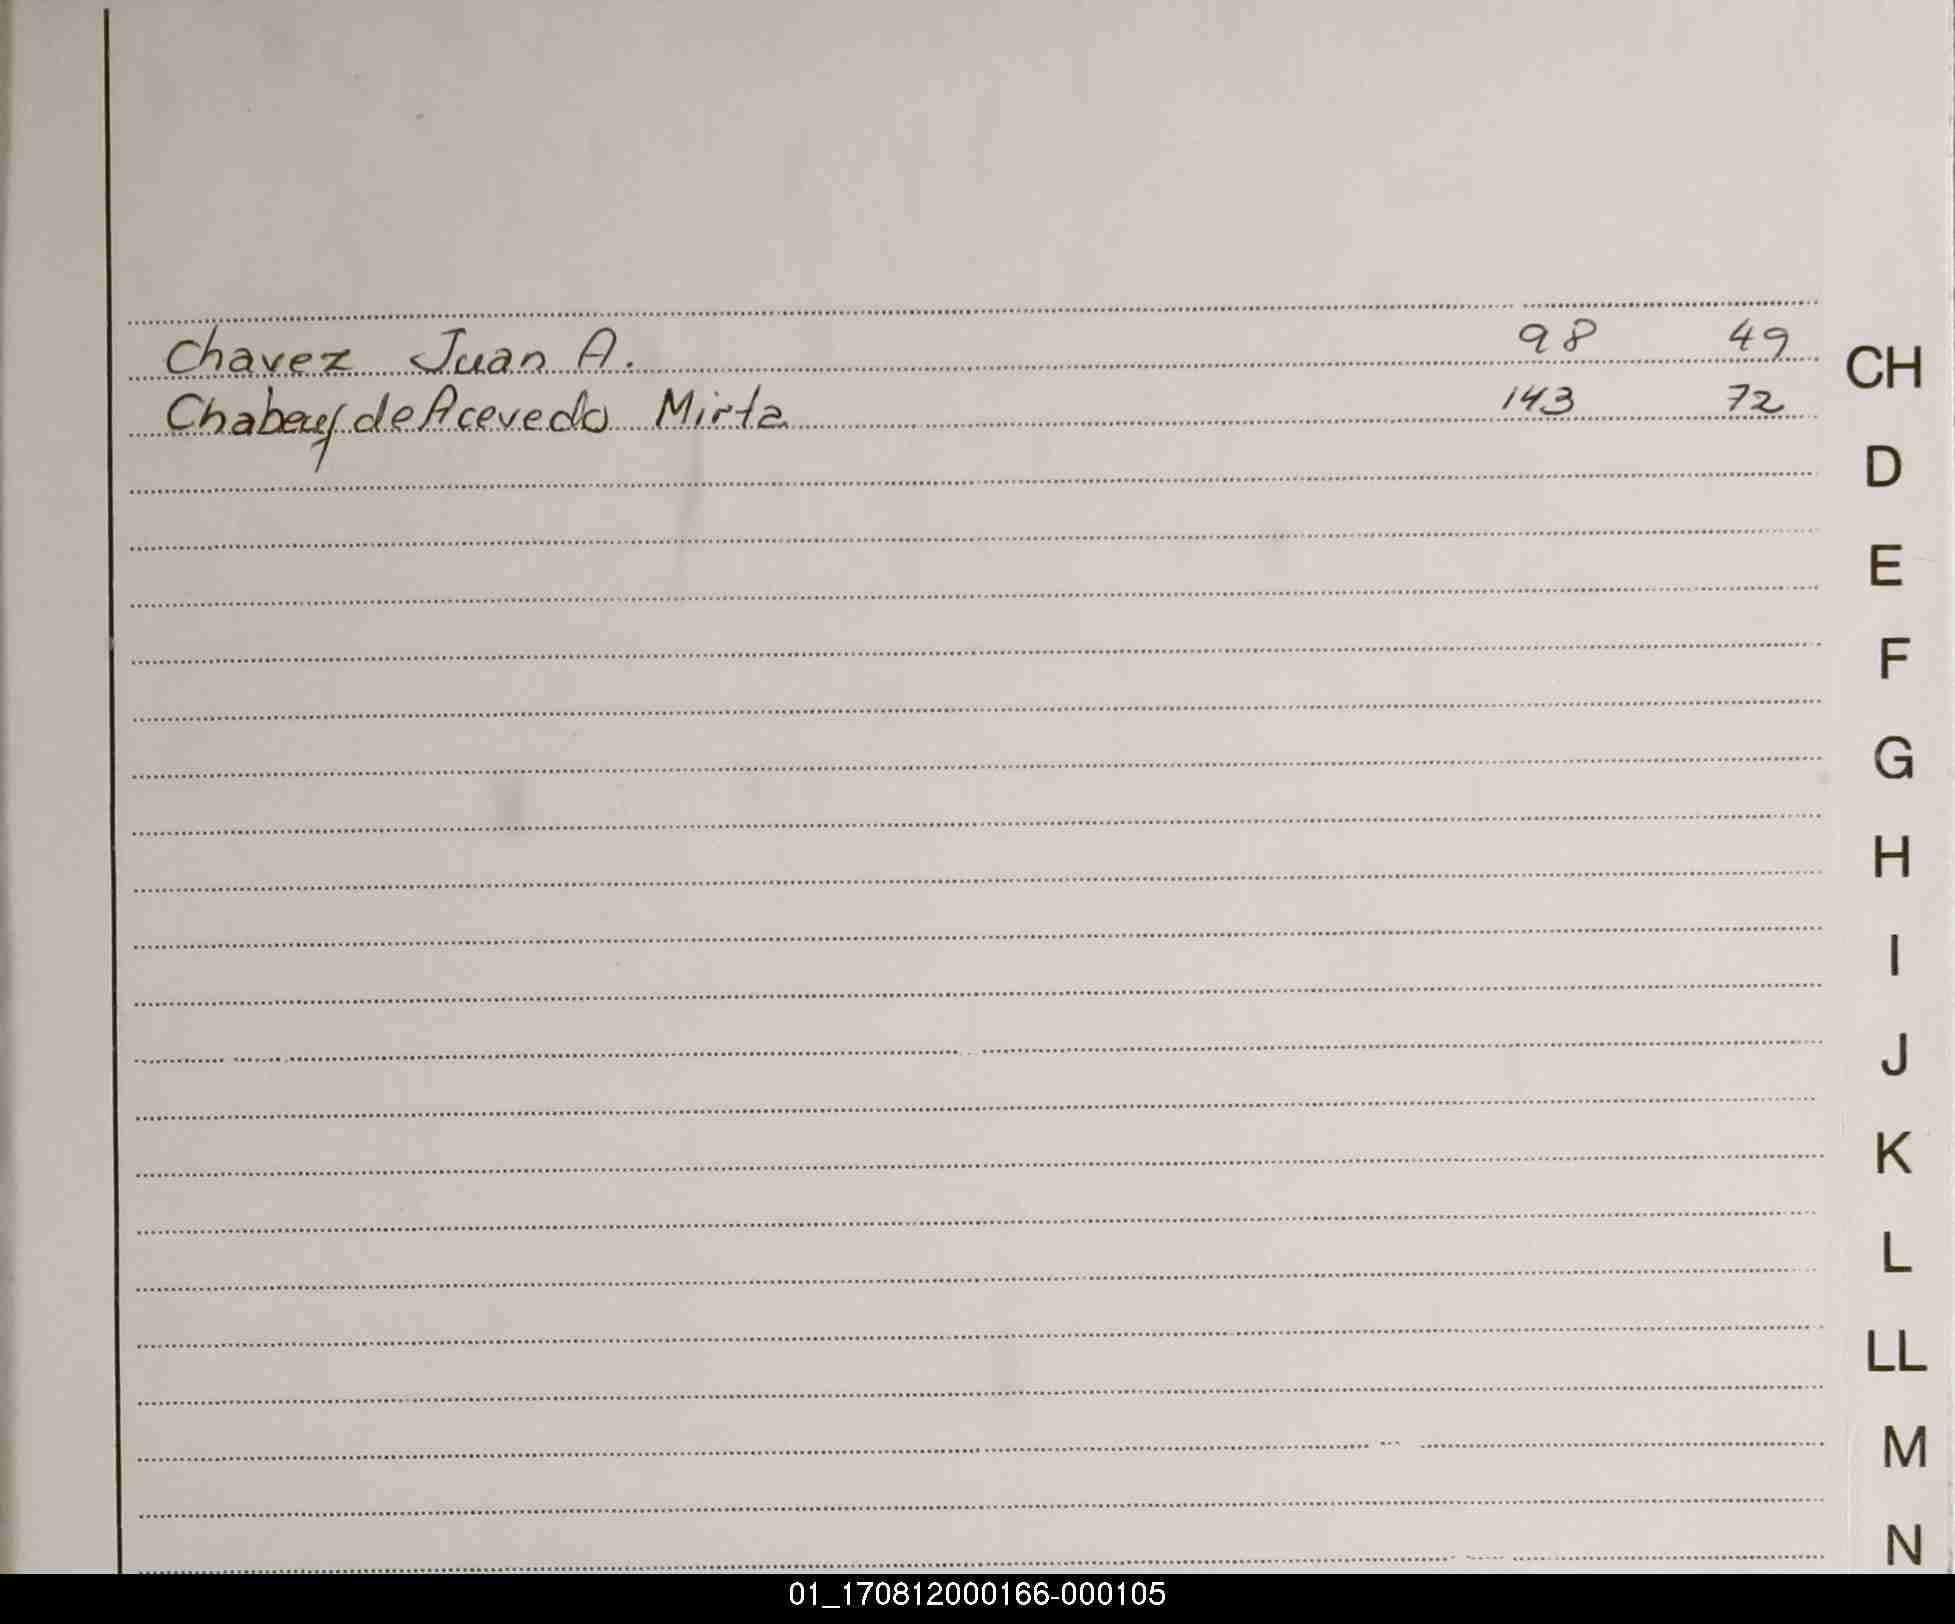 Chavez Juan A. 98 49
CH
de Acevedo Mirta 143 72
D
E
F
G
H
I
J
K
L
LL
M
N
01_170812000166-000105